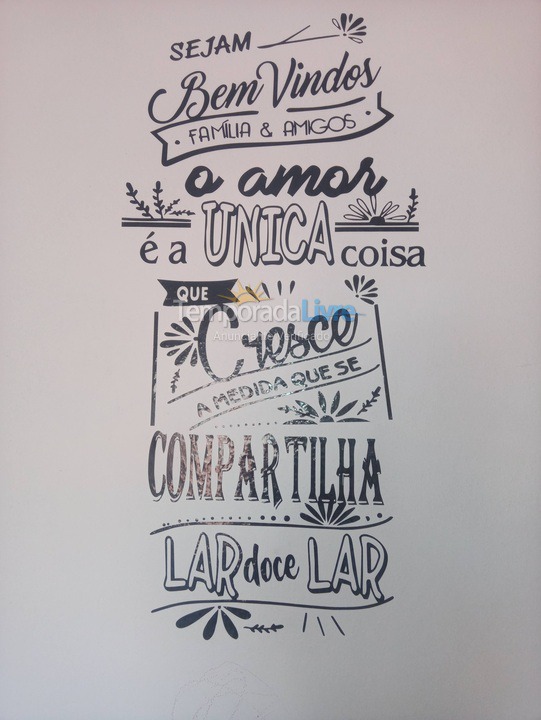 SEJAM
Bem Vindos
FAMÍLIA & AMIGOS
o amor
é a UNICA coisa
QUE
TemporadaLivre
Anunciante Verificado
Cresce
A MEDIDA QUE SE
COMPARTILHA
LAR doce LAR